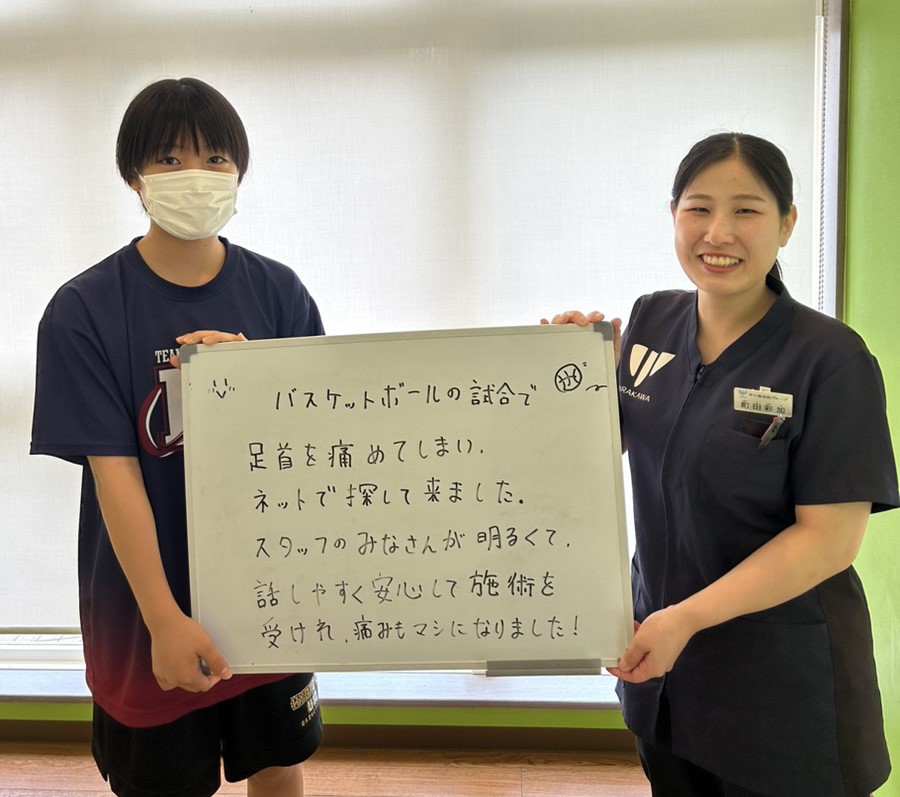 バスケットボールの試合で
足首を痛めてしまい、
ネットで探して来ました。
スタッフのみなさんが明るくて、
話しやすく安心して施術を
受けれ、痛みもマシになりました！
TEA
ARAKAWA